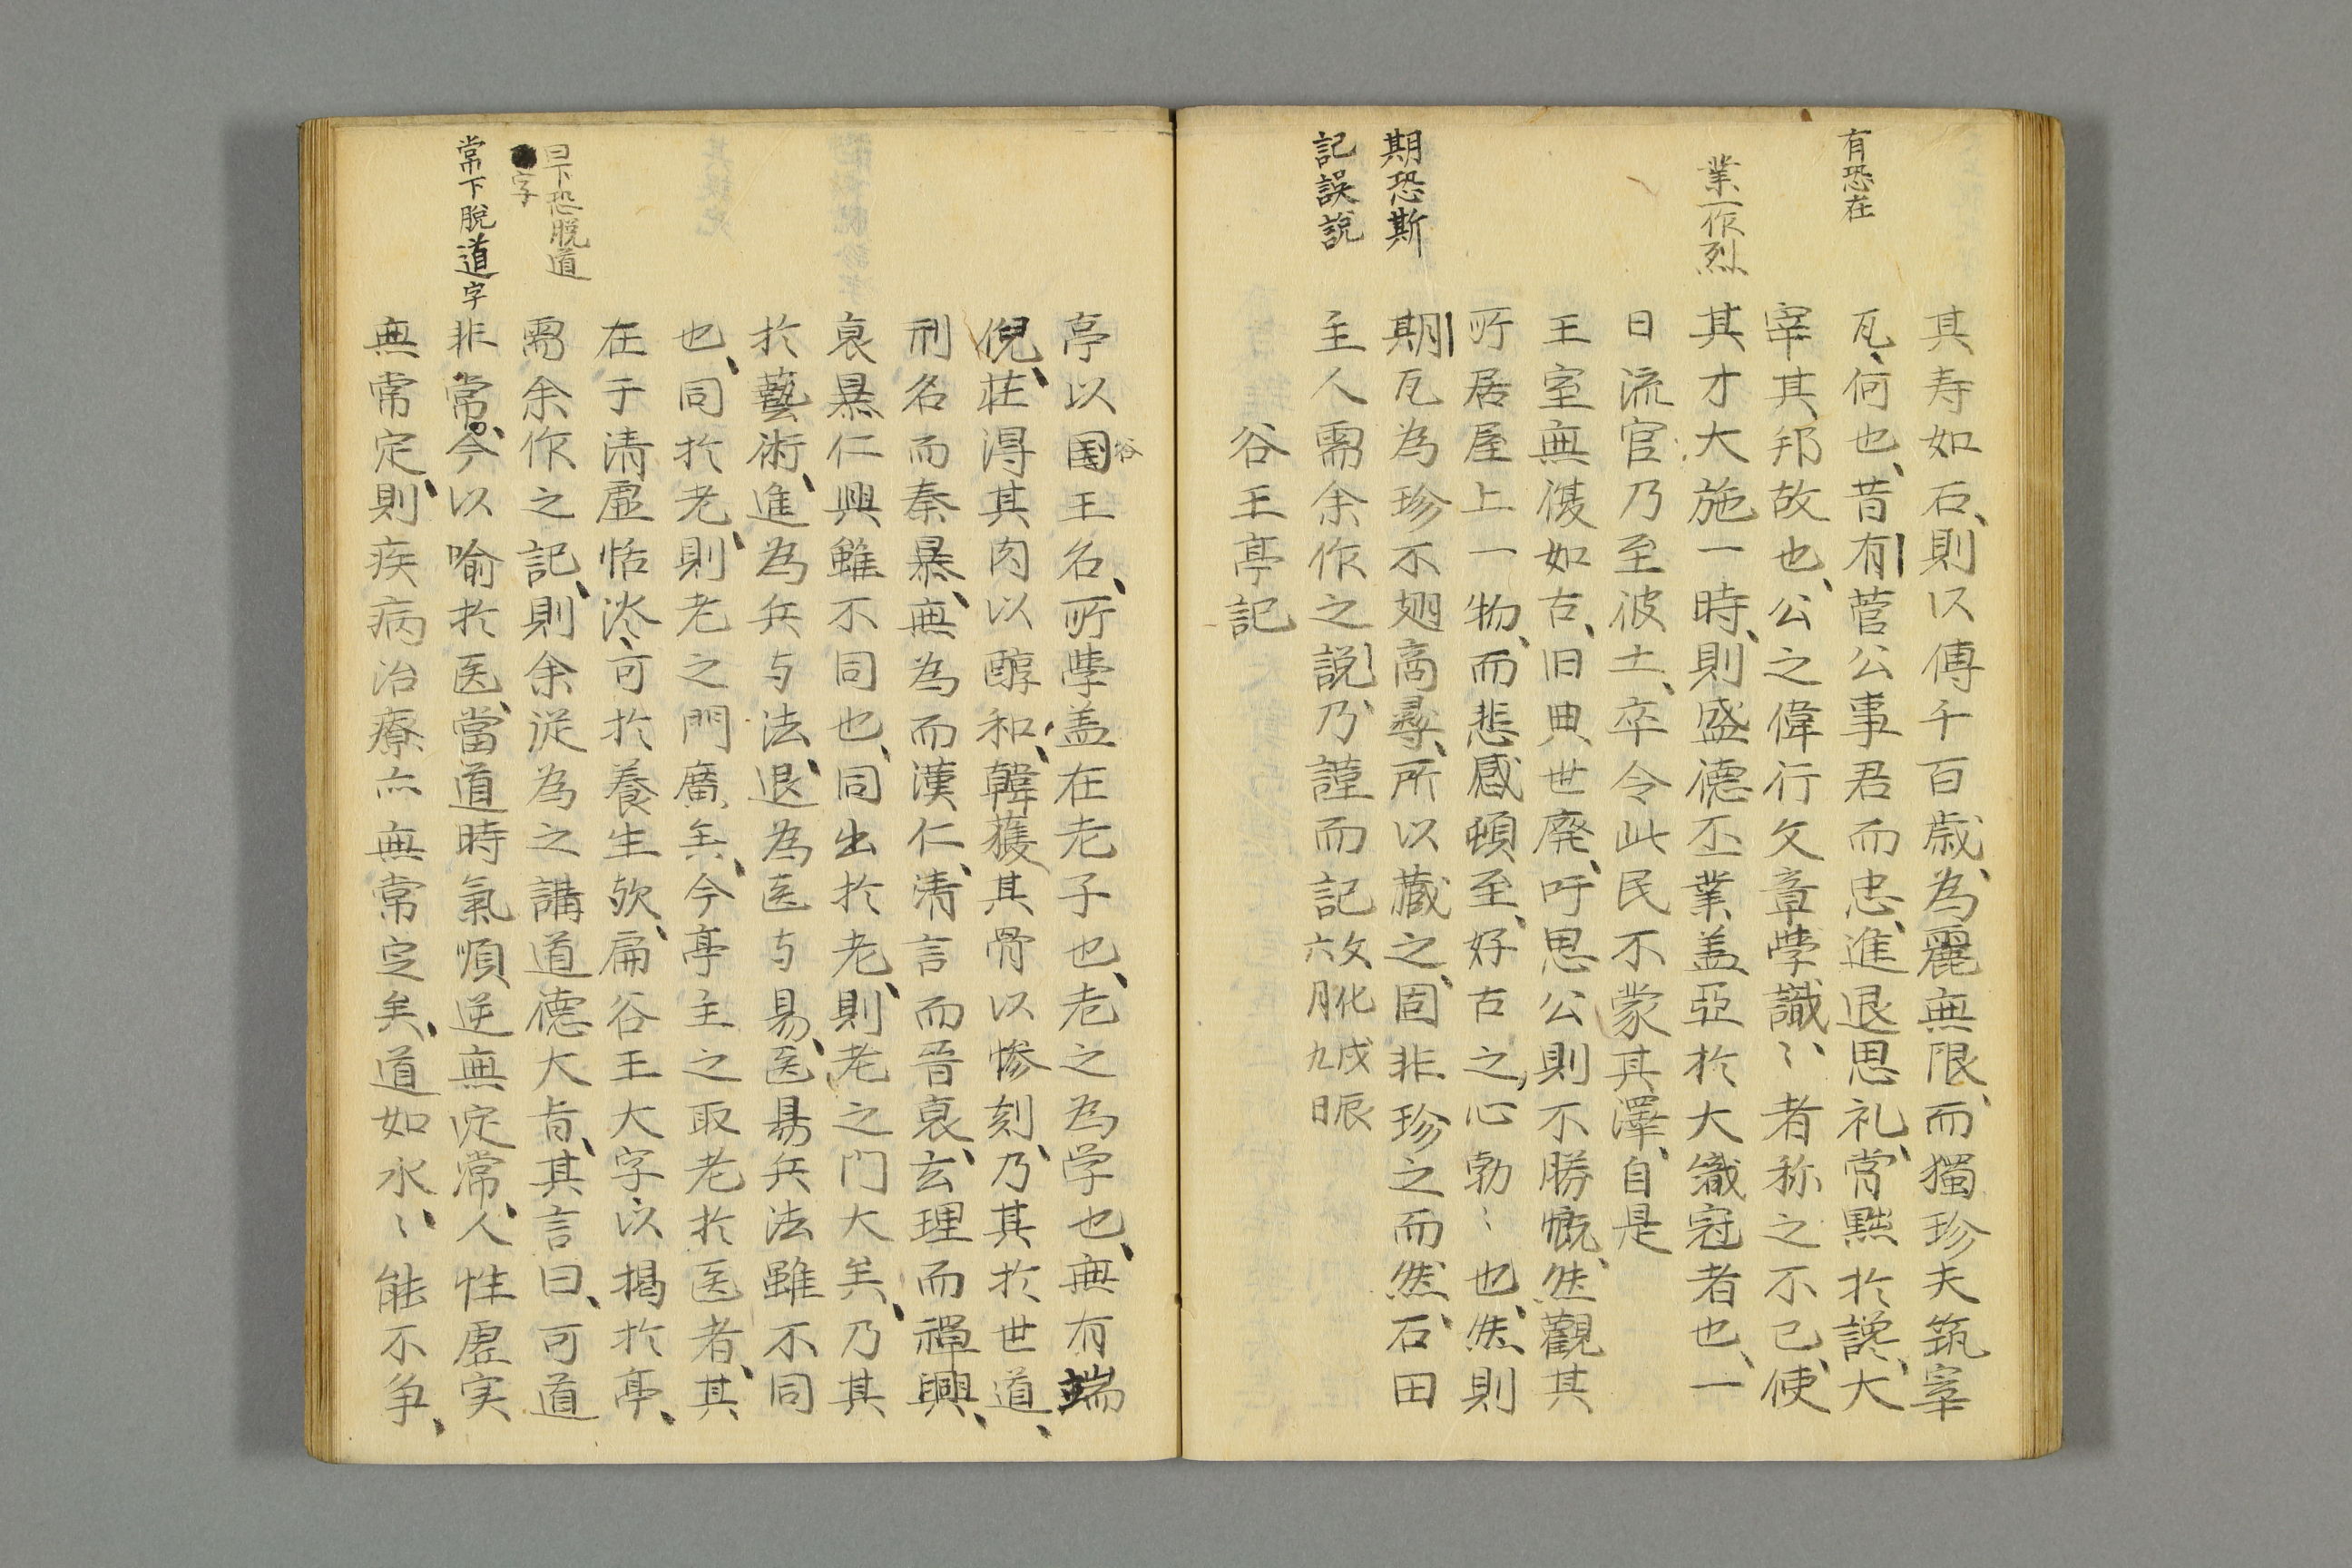 有恐在
業一作烈
期恐斯
記誤説
其寿如石、則以傅千百歳、為麗無限、而獨珍夫筑宰
瓦、何也、昔有菅公事君而忠、進退思礼、常黙於讒、大
宰其邦故也、公之偉行文章學識〻者称之不已、使
其才大施一時、則盛德丕業盖亞於大織冠者也、一
日流官乃至彼土、卒令此民不蒙其澤、自是
王室無復如古、旧典世廃、吁思公則不勝慨、然觀其
所居屋上一物、而悲感頓至、好古之心勃〻也、然則
期瓦為珍不翅商彝、所以蔵之、固非珍之而然、石田
主人需余作之説、乃謹而記 文化戊辰六月九日
谷王亭記
曰下恐脱道
字
常下脱道字
亭以国王名、所學盖在老子也、老之為学也、無有端
谷
倪、荘得其肉以醇和、韓獲其骨以惨刻、乃其於世道、
刑名而秦暴、無為而漢仁、清言而晋衰、玄理而禪興、
衰暴仁興雖不同也、同出於老、則老之门大矣、乃其
於藝術、進為兵与法、退為医与易、医易兵法雖不同
也、同於老、則老之門廣矣、今亭主之取老於医者、其
在于清虚恬淡、可於養生欤、扁谷王大字以掲於亭、
需余作之記、則余従為之講道德大旨、其言曰、可道
非常、今以喻於医、當道時氣順逆無定常、人性虚実
無常定、則疾病治療亦無常定矣、道如水〻能不争、